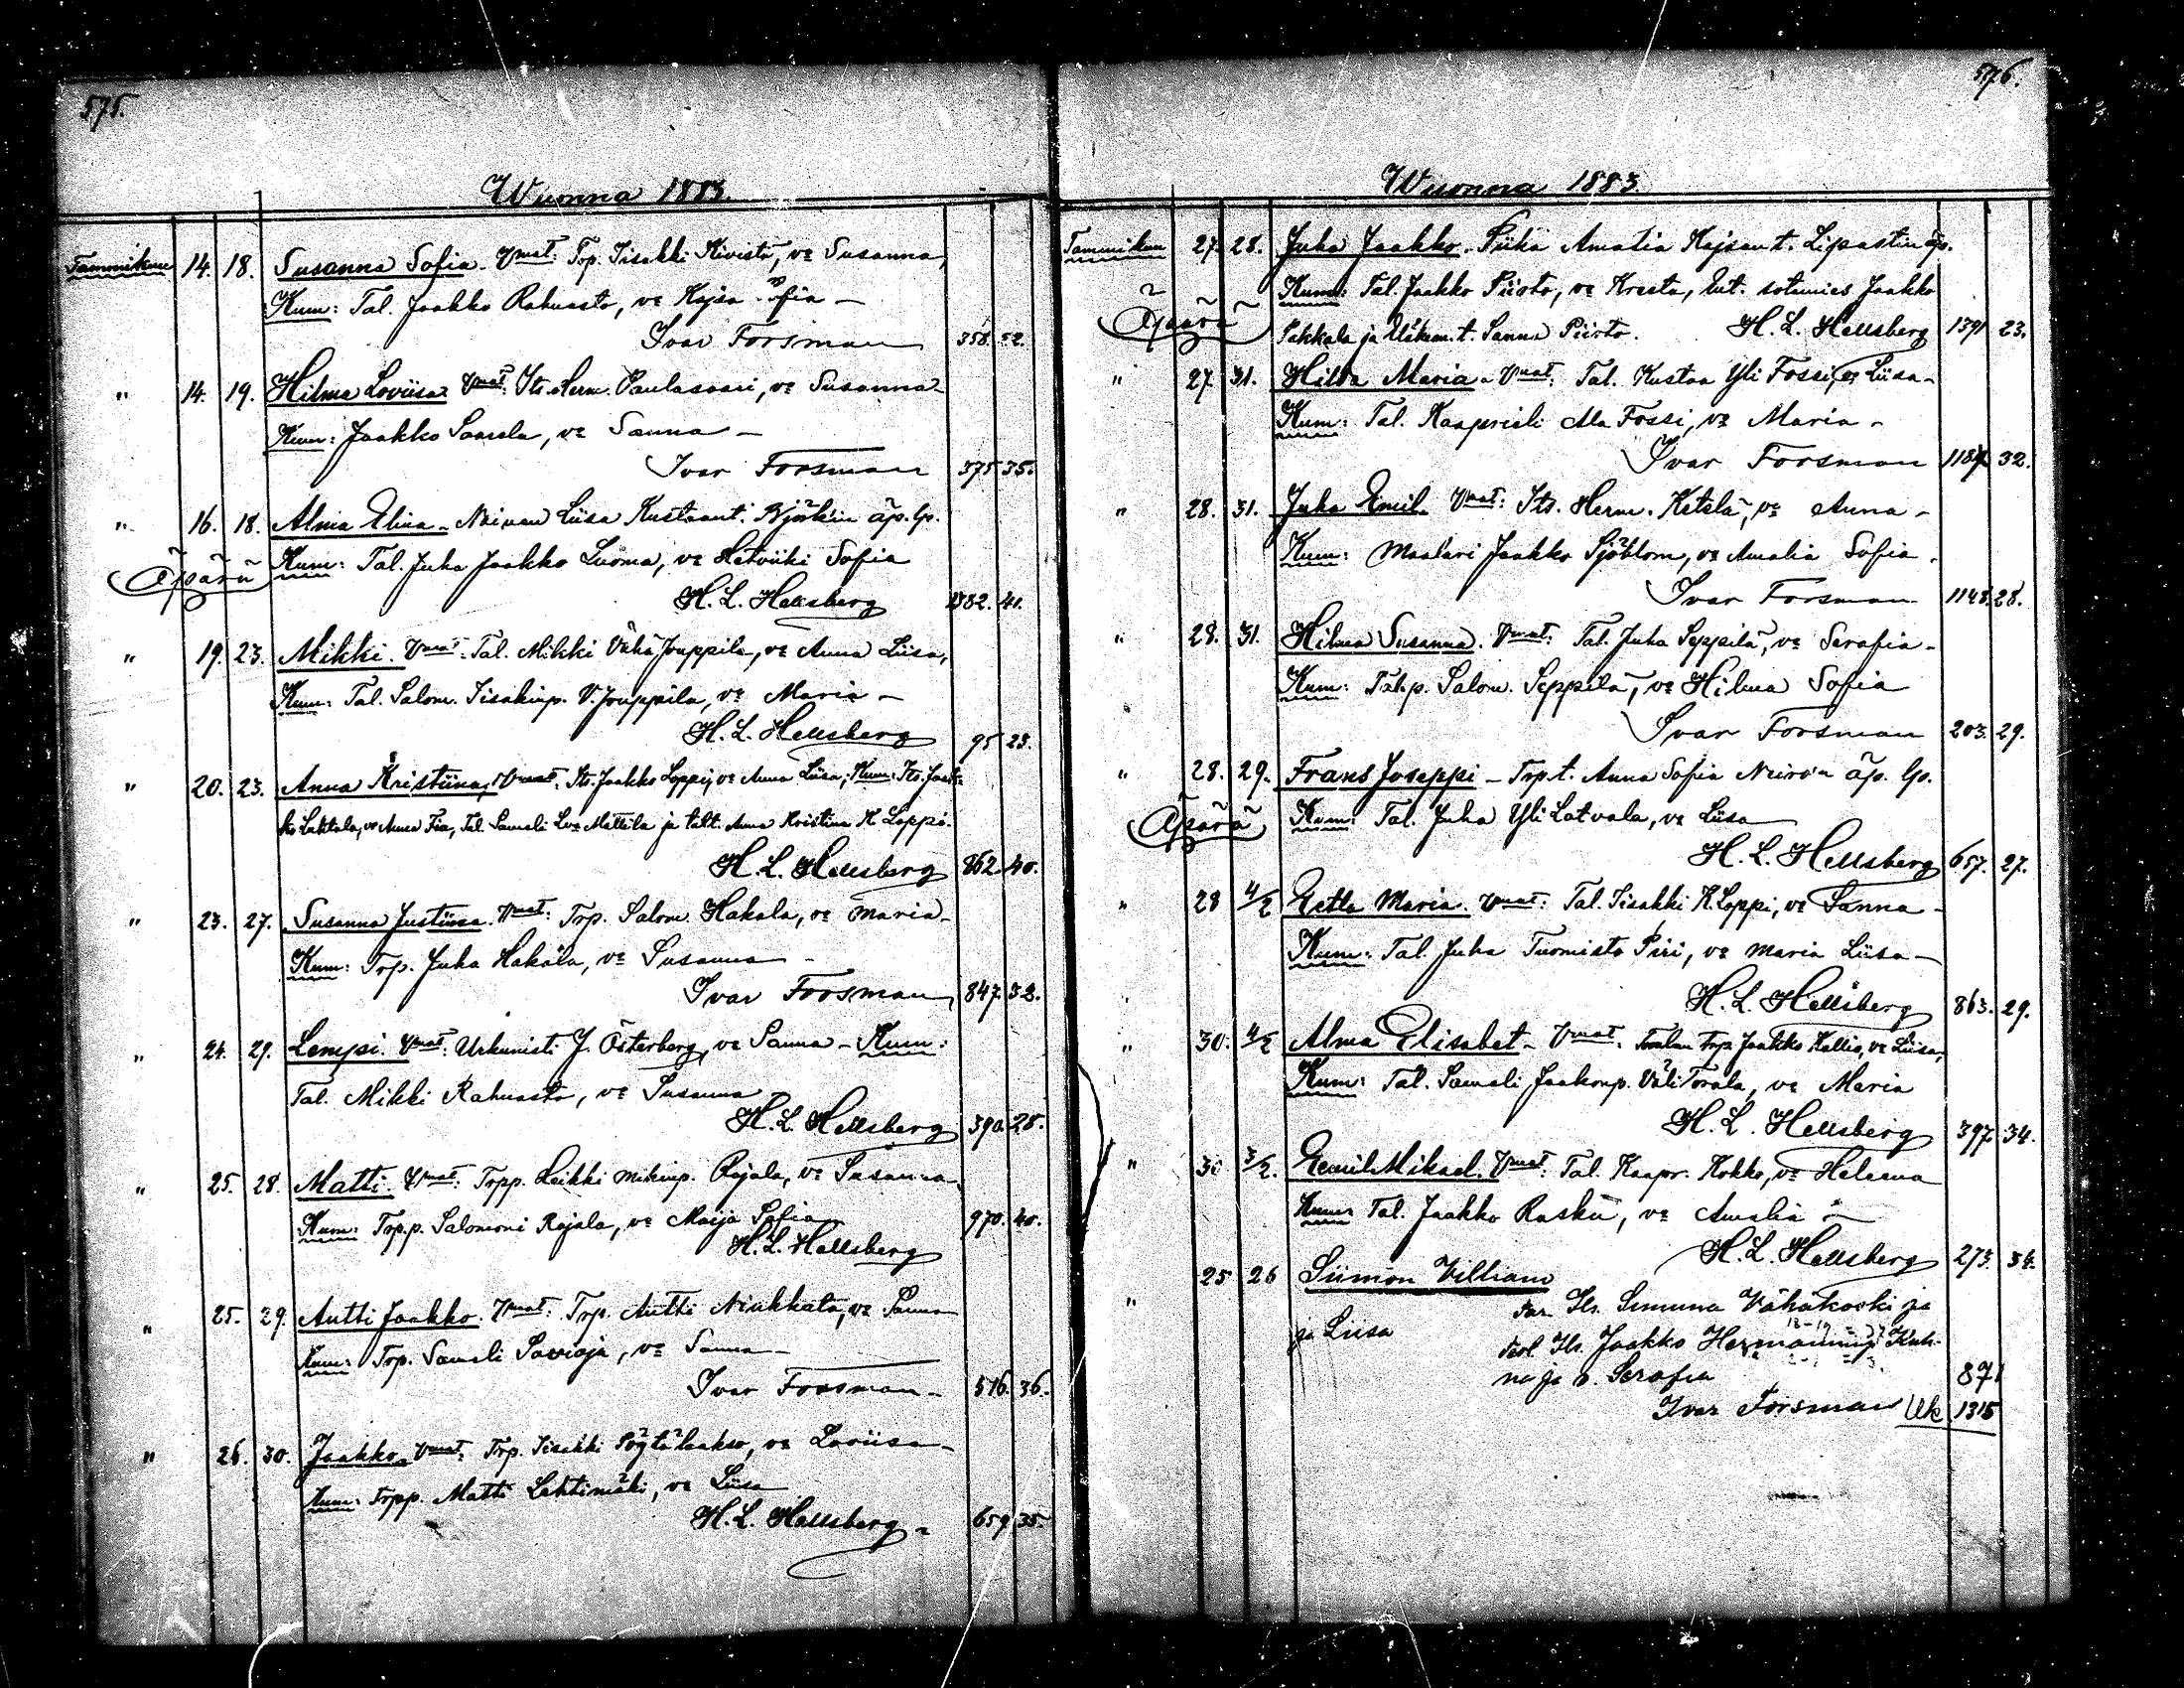 575.
Wuonna 1883.
Tammikuu 14. 18. Susanna Sofia. Vmat: Trp. Iisakki Kivistö, vo Susanna,
Kum: Tal. Jaakko Rahnasto, vo Kajsa Sofia –
Ivar Forsman 358. 52.
" 14. 19. Hilma Loviisa Vmat: Its. Herm. Paulasaari, vo Susanna –
Kum: Jaakko Saarela, vo Sanna –
Ivar Forsman 375 35.
" 16. 18. Alma Elina – Neiven Liisa Kustaant. Björkin äp. lp.
Äpärä Kum: Tal. Juha Jaakko Luoma, vo Hetviiki Sofia
H. L. Hellsberg 1382. 41.
" 19. 23. Mikki. Vmat: Tal. Mikki Vähä Jouppila, vo Anna Liisa,
Kum: Tal. Salom. Iisakinp. V. Jouppila, vo Maria –
H. L. Hellsberg 95 23.
" 20. 23. Anna Kristiina, Vmat: Its. Jaakko Loppi, vo Anna Liisa, Kum: Its. Jaak-
ko Lahtala, vo Anna Fia, Tal. Sameli Mattila ja talt. Anna Kristina K. Loppi.
H. L. Hellsberg 862. 40.
" 23. 27. Susanna Justiina. Vmat: Trp. Salom. Hakala, vo Maria –
Kum: Trp. Juha Hakala, vo Susanna –
Ivar Forsman 847. 32.
" 24. 29. Lempi. Vmat: Urkunisti J. Österberg, vo Sanna – Kum:
Tal. Mikki Rahnasto, vo Susanna
H. L. Hellsberg 390. 28.
" 25. 28. Matti. Vmat: Trpp. Leikki Mikinp. Rajala, vo Susanna,
Kum: Trp.p. Salomoni Rajala, vo Maija Sofia 970. 40.
H. L. Hellsberg
" 25. 29. Antti Jaakko. Vmat: Trp. Antti Niukkala, vo Sanna
Kum: Trp. Sameli Savioja, vo Sanna –
Ivar Forsman – 516. 36.
" 26. 30. Jaakko. Vmat: Trp. Iisakki Pöytälaakso, vo Loviisa –
Kum: Trpp. Matti Lehtimäki, vo Liisa
H. L. Hellsberg – 659 35.
576.
Wuonna 1883.
Tammikuu 27. 28. Juha Jaakko. Piika Amalia Kajsan t. Lipastin äp.
Kum: Tal. Jaakko Piirto, vo Kreeta, Ent. sotamies Jaakko
Äpärä Pakkala ja Sanna Piirto. H. L. Hellsberg 1391 23.
" 27. 31. Hilda Maria – Vmat: Tal. Kustaa Yli Fossi, vo Liisa –
Kum: Tal. Kaaprieli Ala Fossi, vo Maria –
Ivar Forsman 1187 32.
" 28. 31. Juha Emil. Vmat: Its. Herm. Ketola, vo Anna –
Kum: Maalari Jaakko Sjöblom, vo Amalia Sofia.
Ivar Forsman 1148. 28.
" 28. 31. Hilma Susanna. Vmat: Tal. Juha Seppilä, vo Serafia –
Kum: Tal.p. Salom. Seppilä, vo Hilma Sofia
Ivar Forsman 203. 29.
" 28. 29. Frans Joseppi – Trp.t. Anna Sofia Neiro'n äp. lp.
Äpärä Kum: Tal. Juha Yli Latvala, vo Liisa
H. L. Hellsberg 657. 27.
" 28 4/2 Eetla Maria. Vmat: Tal. Iisakki K. Loppi, vo Sanna –
Kum: Tal. Juha Tuomisto Piri, vo Maria Liisa –
H. L. Hellsberg 863. 29.
" 30. 4/2 Alma Elisabet – Vmat: Trp. Jaakko Kallio, vo Liisa,
Kum: Tal. Sameli Jaakonp. Väli Torala, vo Maria
H. L. Hellsberg 397 34.
" 30 3/2. Eemil Mikael. Vmat: Tal. Kaapr. Kokko, vo Heleena
Kum: Tal. Jaakko Rasku, vo Amalia –
H. L. Hellsberg 273. 34.
" 25 26 Siimon Villiam
Var. Its. Simuna Vähäkoski ja
ja Liisa
Its. Jaakko Hermanninp. Kuh-
na ja v. Serafia 871
Ivar Forsman Uk 1315